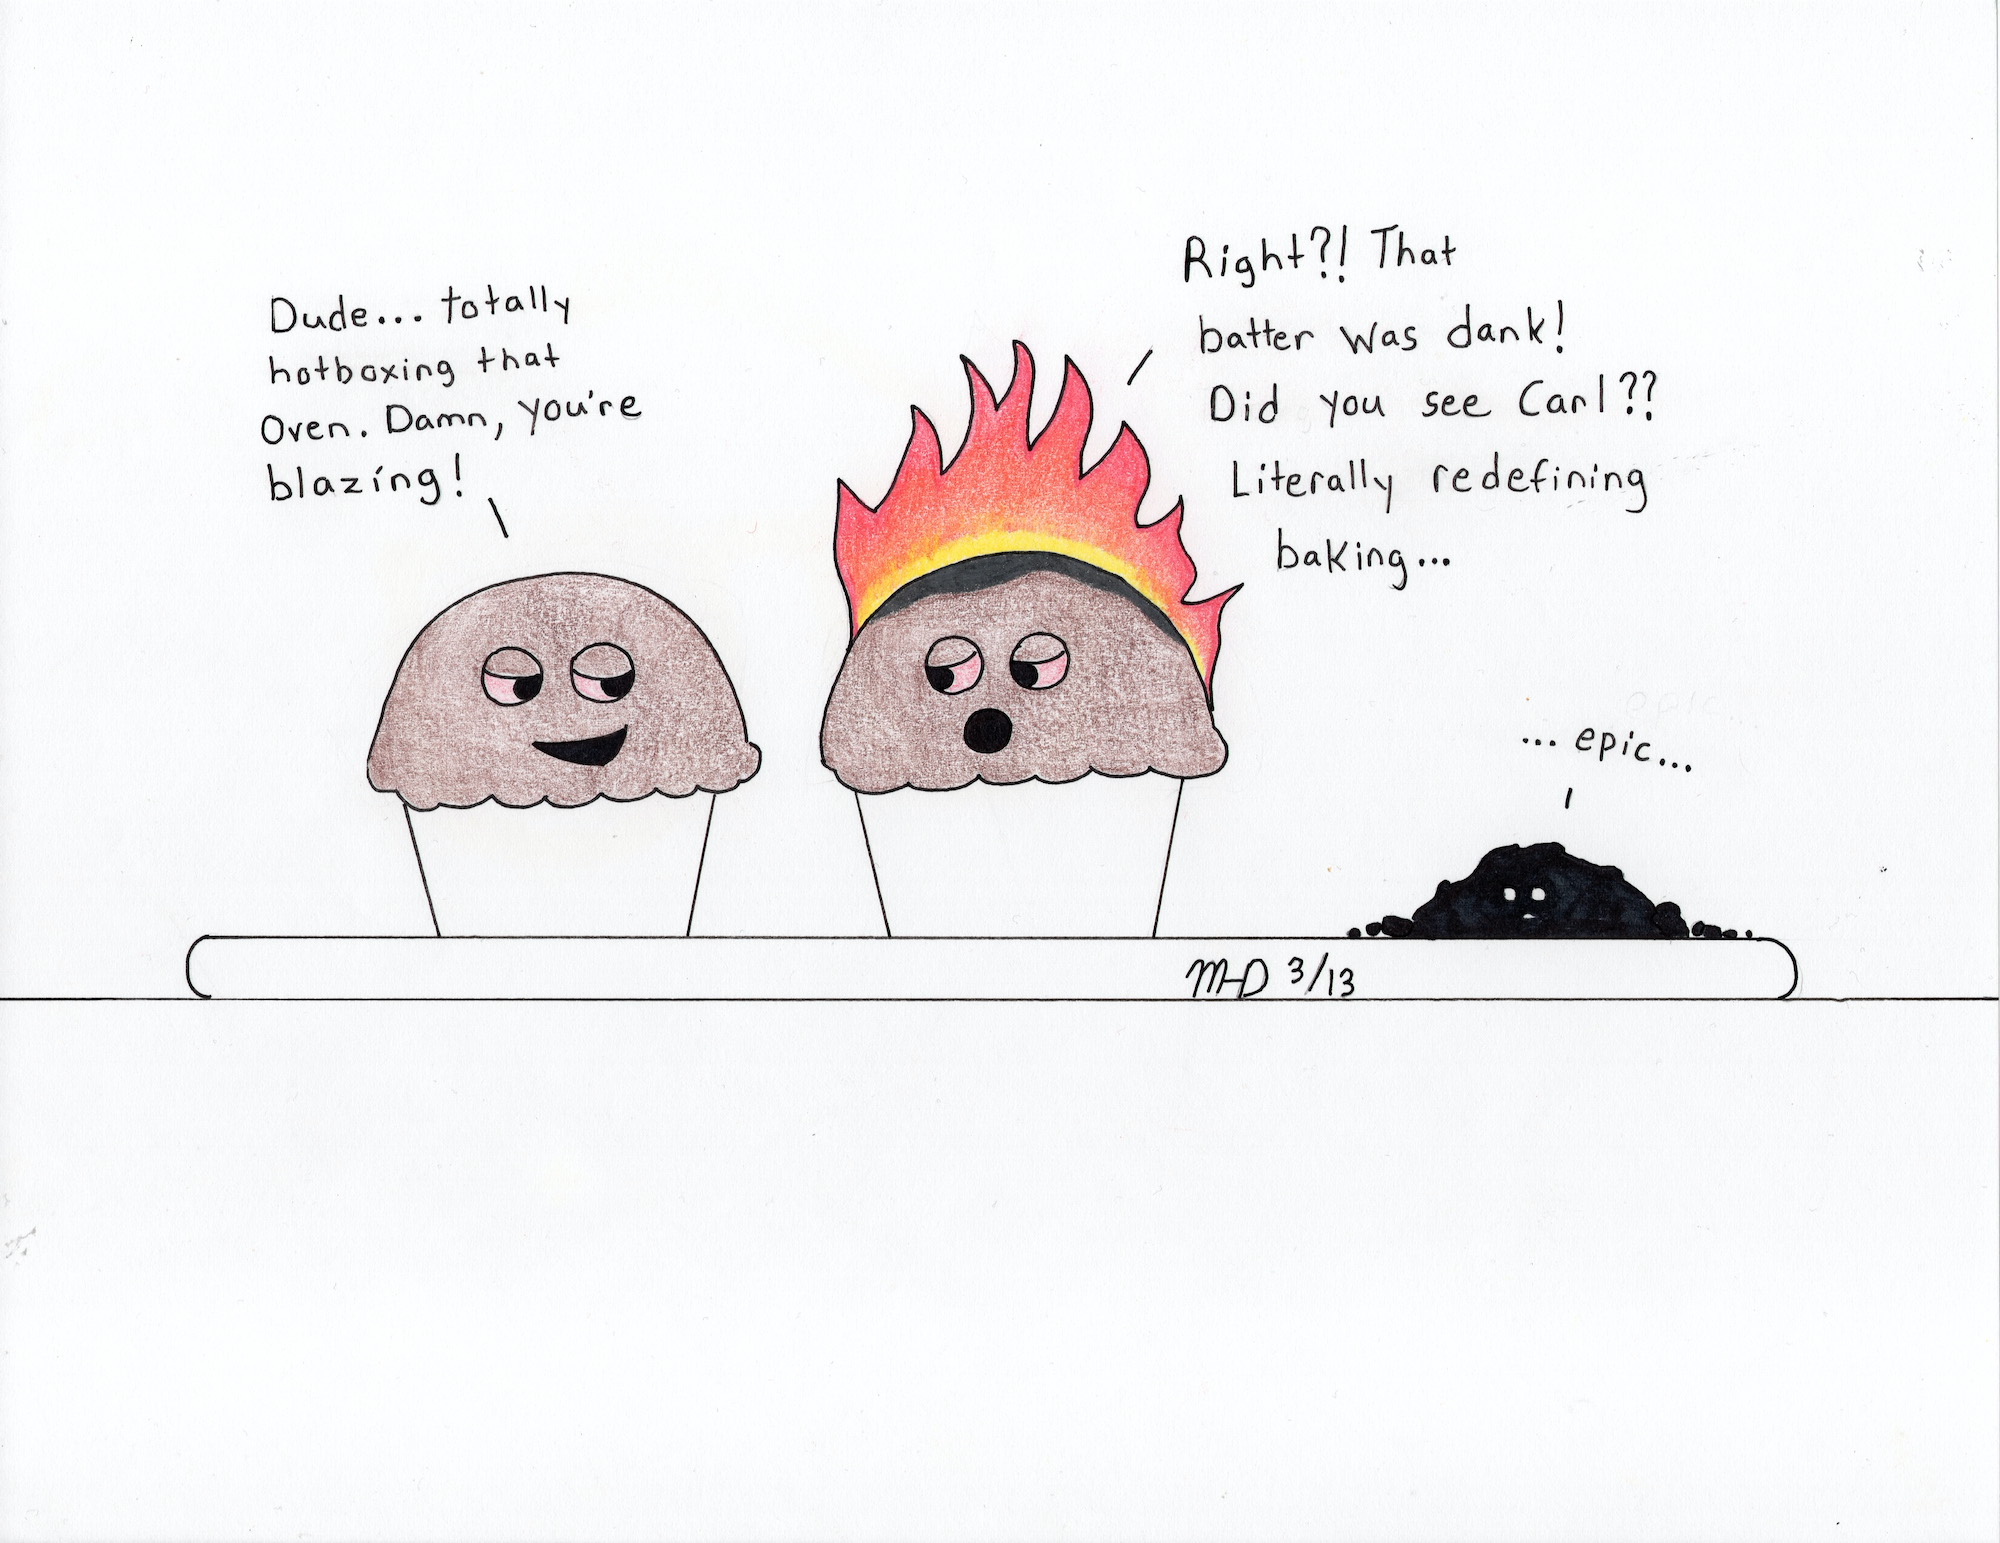 Dude... totally
hotboxing that
oven. Damn, you're
blazing!
Right?! That
batter was dank!
Did you see Carl??
Literally redefining
baking...
... epic...
M-D 3/13